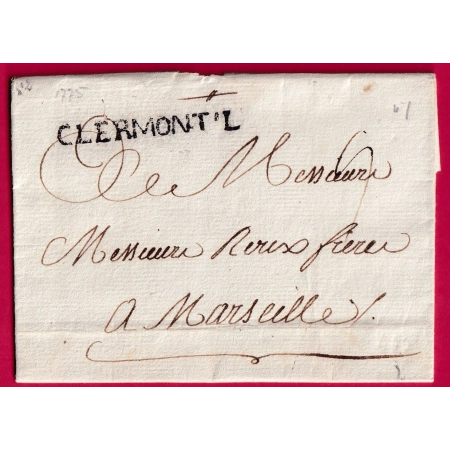 1775
CLERMONT'L
A Messieurs
Messieurs Roux freres
A Marseille